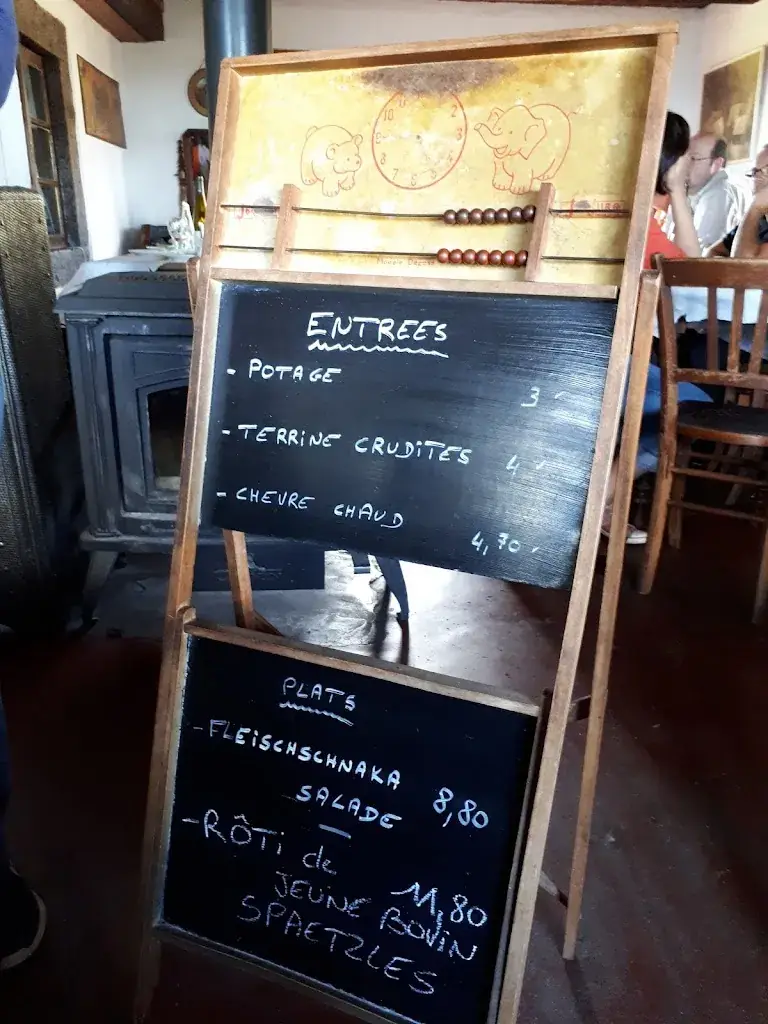 ENTREES
- POTAGE 3 -
- TERRINE CRUDITES 4 -
- CHEVRE CHAUD 4,70 -
PLATS
- FLEISCHSCHNAKA
SALADE 8,80
- RÔTI de
JEUNE BOVIN 11,80
SPAETZLES